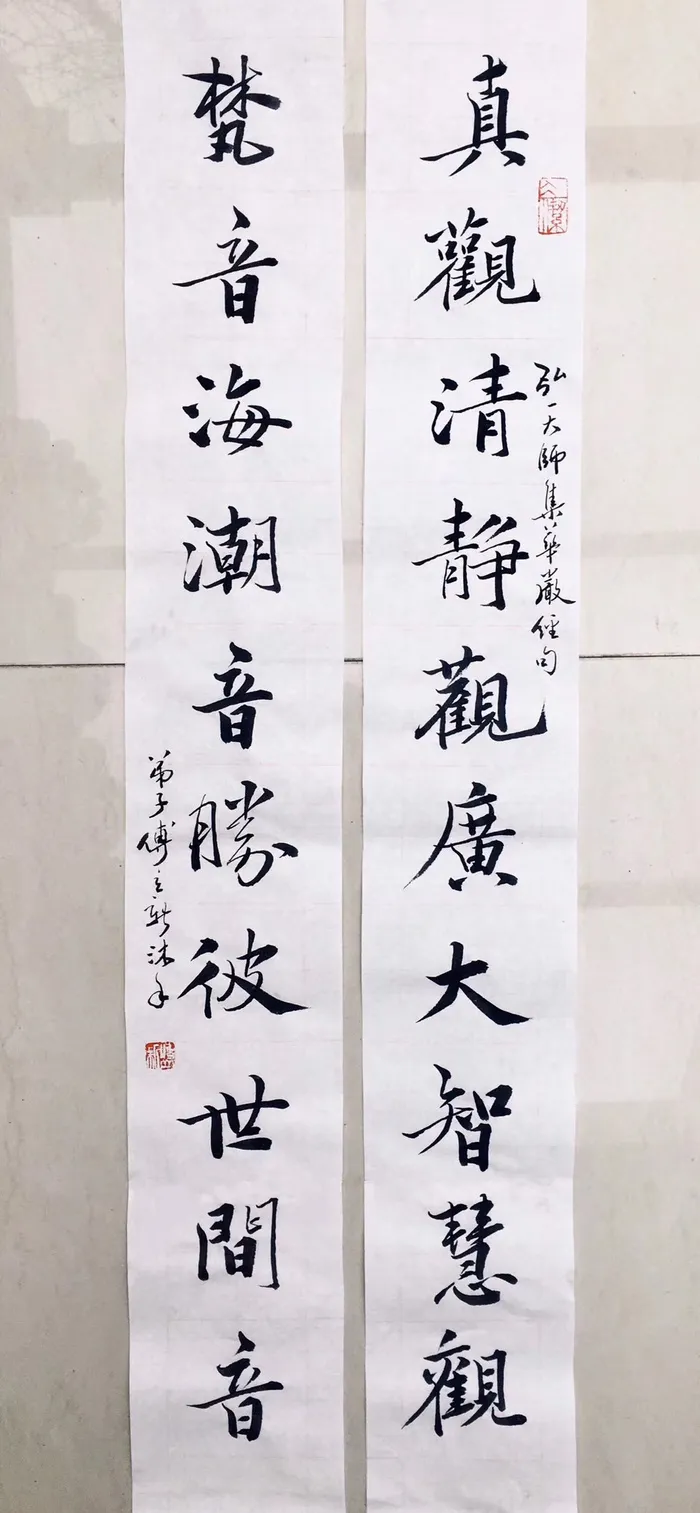 真觀清靜觀廣大智慧觀
弘一大師集華嚴經句
梵音海潮音勝彼世間音
弟子傅立新沐手